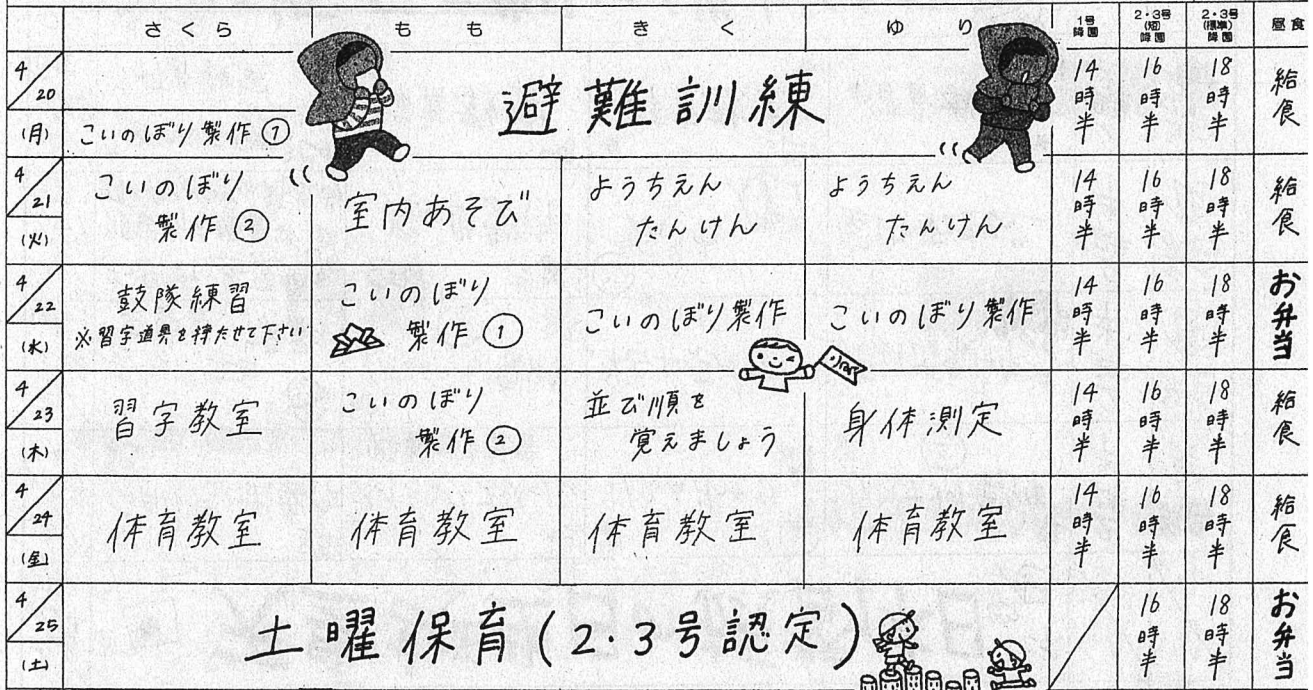 さくら もも きく ゆり 1号降園 2・3号(短)降園 2・3号(標準)降園 昼食
4/20 (月) 避難訓練 14時半 16時半 18時半 給食
こいのぼり製作①
4/21 (火) こいのぼり 製作② 室内あそび ようちえん たんけん ようちえん たんけん 14時半 16時半 18時半 給食
4/22 (水) 鼓隊練習 こいのぼり 製作① こいのぼり製作 こいのぼり製作 14時半 16時半 18時半 お弁当
※習字道具を持たせて下さい
4/23 (木) 習字教室 こいのぼり 製作② 並び順を 覚えましょう 身体測定 14時半 16時半 18時半 給食
4/24 (金) 体育教室 体育教室 体育教室 体育教室 14時半 16時半 18時半 給食
4/25 (土) 土曜保育(2・3号認定) 16時半 18時半 お弁当